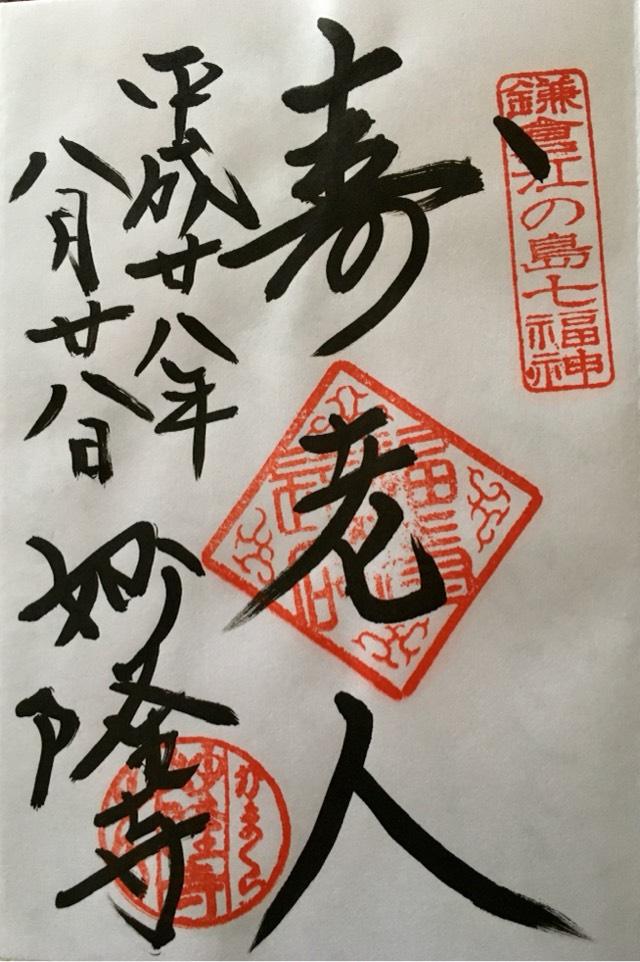 鎌倉江の島七福神
寿老人
平成廿八年
八月廿八日
妙隆寺
かまくら
妙隆寺